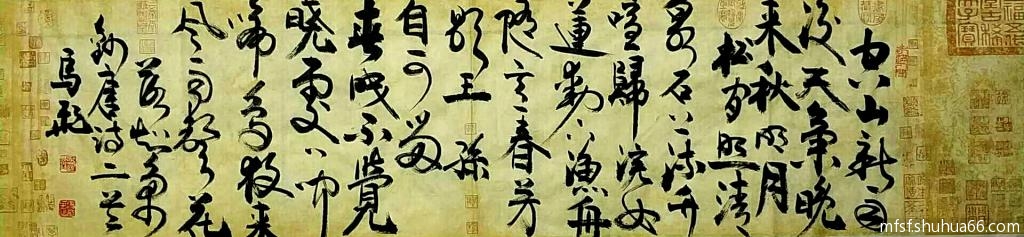 空山新雨
後天氣晚
来秋明月
松間照清
泉石上流竹
喧歸浣女
蓮動下漁舟
随意春芳
歇王孫
自可留
春眠不覺
曉處處聞
啼鳥夜来
风雨聲花
落知多少
錄唐诗二首
馬
mfsfshuhua66.com